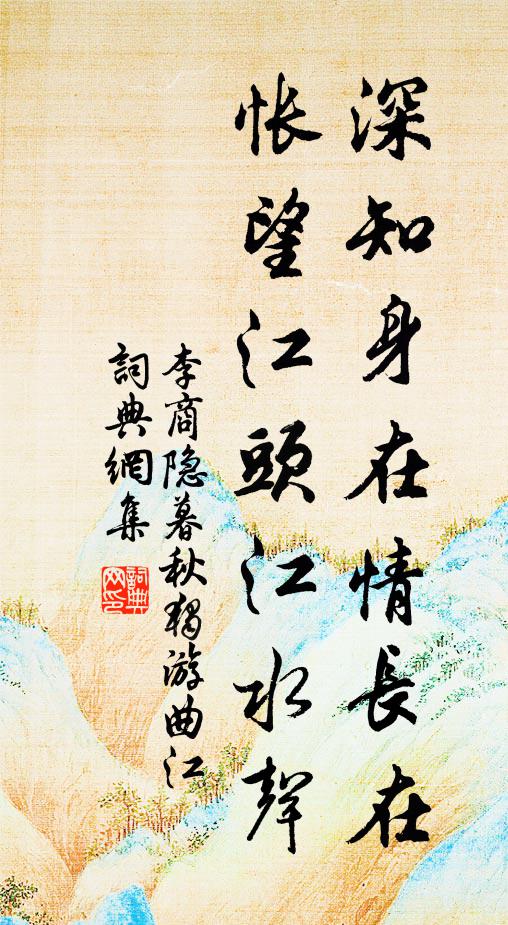 深知身在情長在
悵望江頭江水聲
李商隐暮秋獨游曲江
詞典網集
詞典
網印